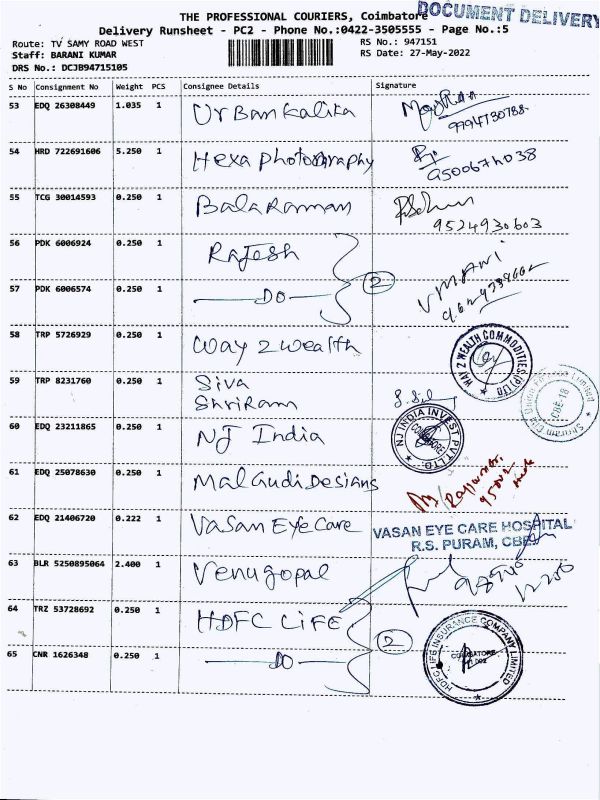 THE PROFESSIONAL COURIERS, Coimbatore
DOCUMENT DELIVERY
Delivery Runsheet - PC2 - Phone No.:0422-3505555 - Page No.:5
Route: TV SAMY ROAD WEST
RS No.: 947151
Staff: BARANI KUMAR
RS Date: 27-May-2022
DRS No.: DCJB94715105
S No Consignment No Weight PCS Consignee Details Signature
53 EDQ 26308449 1.035 1 UrBanKalita
9994730788
54 HRD 722691606 5.250 1 Hexa Photography
55 TCG 30014593 0.250 1 BalaRaman
9524930603
56 PDK 6006924 0.250 1 Rajesh
2
57 PDK 6006574 0.250 1 DO
VMANI
58 TRP 5726929 0.250 1 Way 2 Wealth
WAY 2 WEALTH COMMODITIES (P) LTD
59 TRP 8231760 0.250 1 Siva
Shriram
CBE-18
60 EDQ 23211865 0.250 1 NJ India
NJ INDIA INVEST PVT LTD.
COIMBATORE
61 EDQ 25078630 0.250 1 MalGudiDesians
62 EDQ 21406720 0.222 1 Vasan Eye Care
VASAN EYE CARE HOSPITAL
R.S. PURAM, CBE
63 BLR 5250895064 2.400 1 Venugopal
64 TRZ 53728692 0.250 1 HDFC LIFE
2
HDFC LIFE INSURANCE COMPANY LIMITED
COIMBATORE
65 CNR 1626348 0.250 1 DO